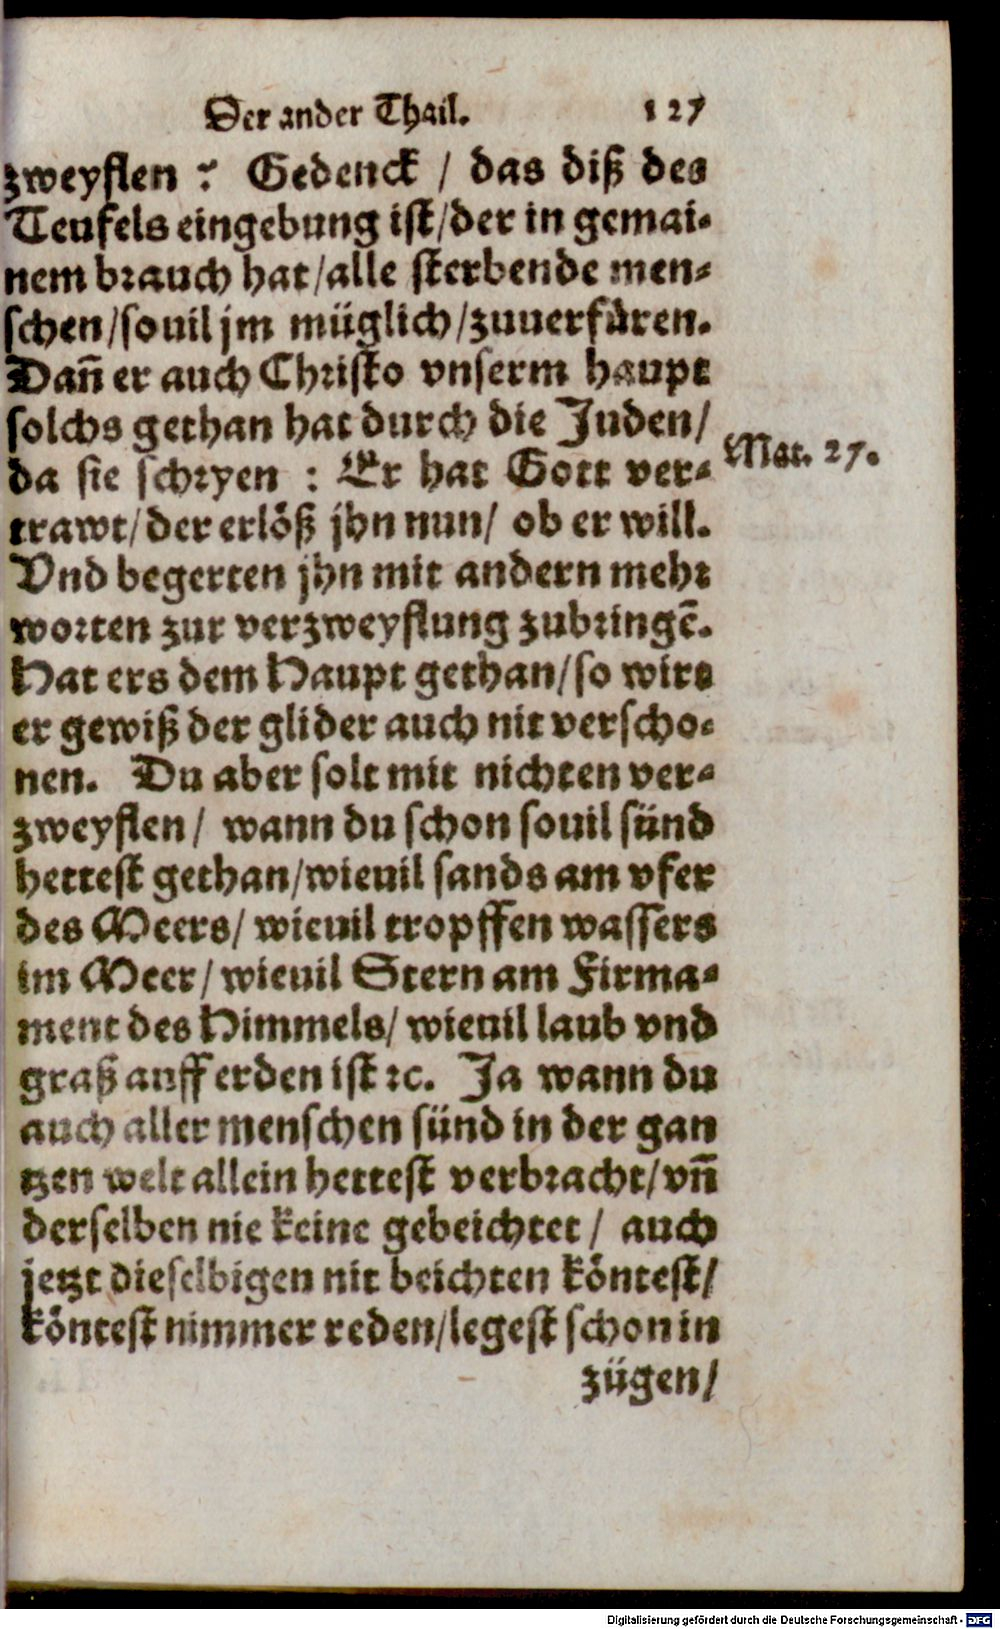 Der ander Thail. 127
zweyflen? Gedenck / das diß des
Teufels eingebung ist/der in gemai-
nem brauch hat/alle sterbende men-
schen/souil jm müglich/zuuerfüren.
Dañ er auch Christo vnserm haupt
solchs gethan hat durch die Juden/
da sie schryen : Er hat Gott ver-
Mat. 27.
trawt/der erlöß jhn nun/ ob er will.
Vnd begerten jhn mit andern mehr
worten zur verzweyflung zubringē.
Hat ers dem Haupt gethan/so wirt
er gewiß der glider auch nit verscho-
nen. Du aber solt mit nichten ver-
zweyflen/ wann du schon souil sünd
hettest gethan/wieuil sands am vfer
des Meers/ wieuil tropffen wassers
im Meer/ wieuil Stern am Firma-
ment des Himmels/ wieuil laub vnd
graß auff erden ist ꝛc. Ja wann du
auch aller menschen sünd in der gan
tzen welt allein hettest verbracht/vñ
derselben nie keine gebeichtet / auch
jetzt dieselbigen nit beichten köntest/
köntest nimmer reden/legest schon in
zügen/
Digitalisierung gefördert durch die Deutsche Forschungsgemeinschaft - DFG